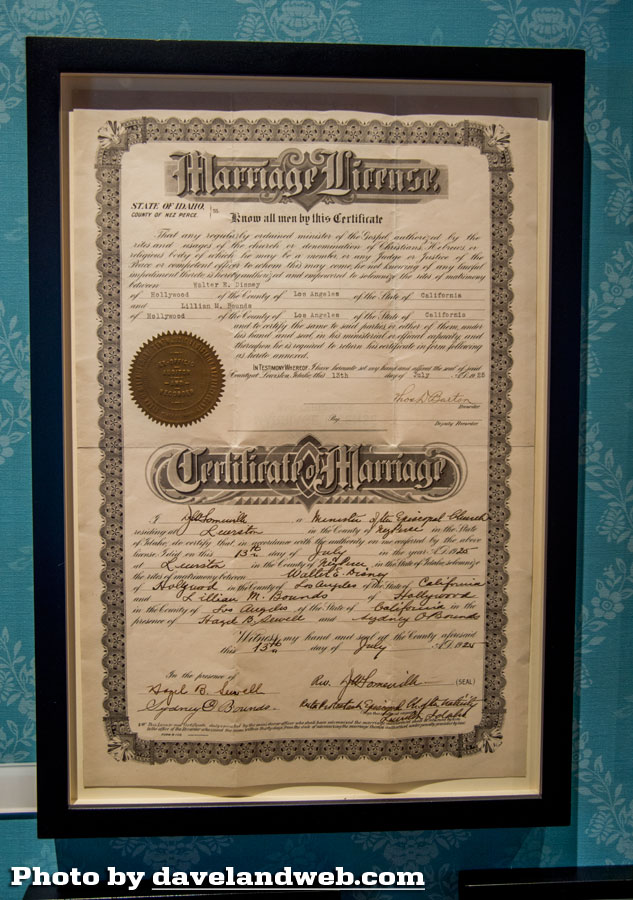 Marriage License.
STATE OF IDAHO,
COUNTY OF NEZ PERCE.
ss
Know all men by this Certificate
That any regularly ordained minister of the Gospel, authorized by the
rites and usages of the church or denomination of Christians, Hebrews, or
religious body of which he may be a member, or any Judge or Justice of the
Peace or competent officer to whom this may come, he not knowing of any lawful
impediment thereto, is hereby authorized and empowered to solemnize the rites of matrimony
between Walter E. Disney
of Hollywood of the County of Los Angeles of the State of California
and Lillian M. Bounds
of Hollywood of the County of Los Angeles of the State of California
and to certify the same to said parties, or either of them, under
his hand and seal, in his ministerial or official capacity, and
thereupon he is required to return his certificate in form following
as hereto annexed.
IN TESTIMONY WHEREOF, I have hereunto set my hand and affixed the seal of said
County at Lewiston, Idaho, this 13th day of July A.D. 1925
Thos D. Barton
Recorder
By
Deputy Recorder
Certificate of Marriage
I, a Minister of the Episcopal Church
residing at Lewiston in the County of Nez Perce in the State
of Idaho, do certify that in accordance with the authority on me conferred by the above
license, I did on this 13th day of July in the year A.D. 1925
at Lewiston in the County of Nez Perce in the State of Idaho, solemnize
the rites of matrimony between Walter E. Disney
of Hollywood in the County of Los Angeles of the State of California
and Lillian M. Bounds of Hollywood
in the County of Los Angeles of the State of California in the
presence of Hazel B. Sewell and Sydney C Bounds
Witness my hand and seal at the County aforesaid
this 13th day of July A.D. 1925
In the presence of
Rev. (SEAL)
Hazel B. Sewell
Sydney C Bounds.
Episcopal
Photo by davelandweb.com